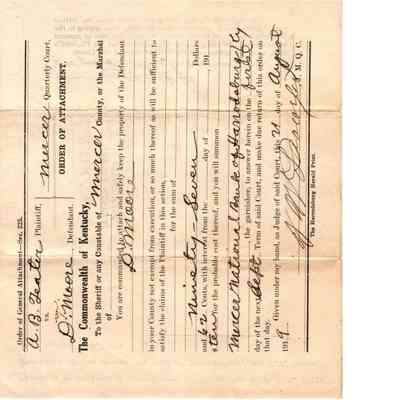 Order of General Attachment—Sec. 225.
A. B. Teater Plaintiff,
vs.
D. Moore Defendant.
Mercer Quarterly Court,
ORDER OF ATTACHMENT.
The Commonwealth of Kentucky,
To the Sheriff or any Constable of Mercer County, or the Marshal
of
You are commanded to attach and safely keep the property of the Defendant
D. Moore
in your County not exempt from execution, or so much thereof as will be sufficient to
satisfy the claims of the Plaintiff in this action,
for the sum of
Ninety-Seven Dollars
and 62 Cents, with interest from the day of 191
& ten for the probable cost thereof, and you will summon
Mercer National Bank of Harrodsburg Ky
the garnishee, to answer herein on the first
day of the next Sept Term of said Court, and make due return of this order on
that day.
Given under my hand, as Judge of said Court, this 21 day of August
1919
M. Q. C.
The Harrodsburg Herald Print.